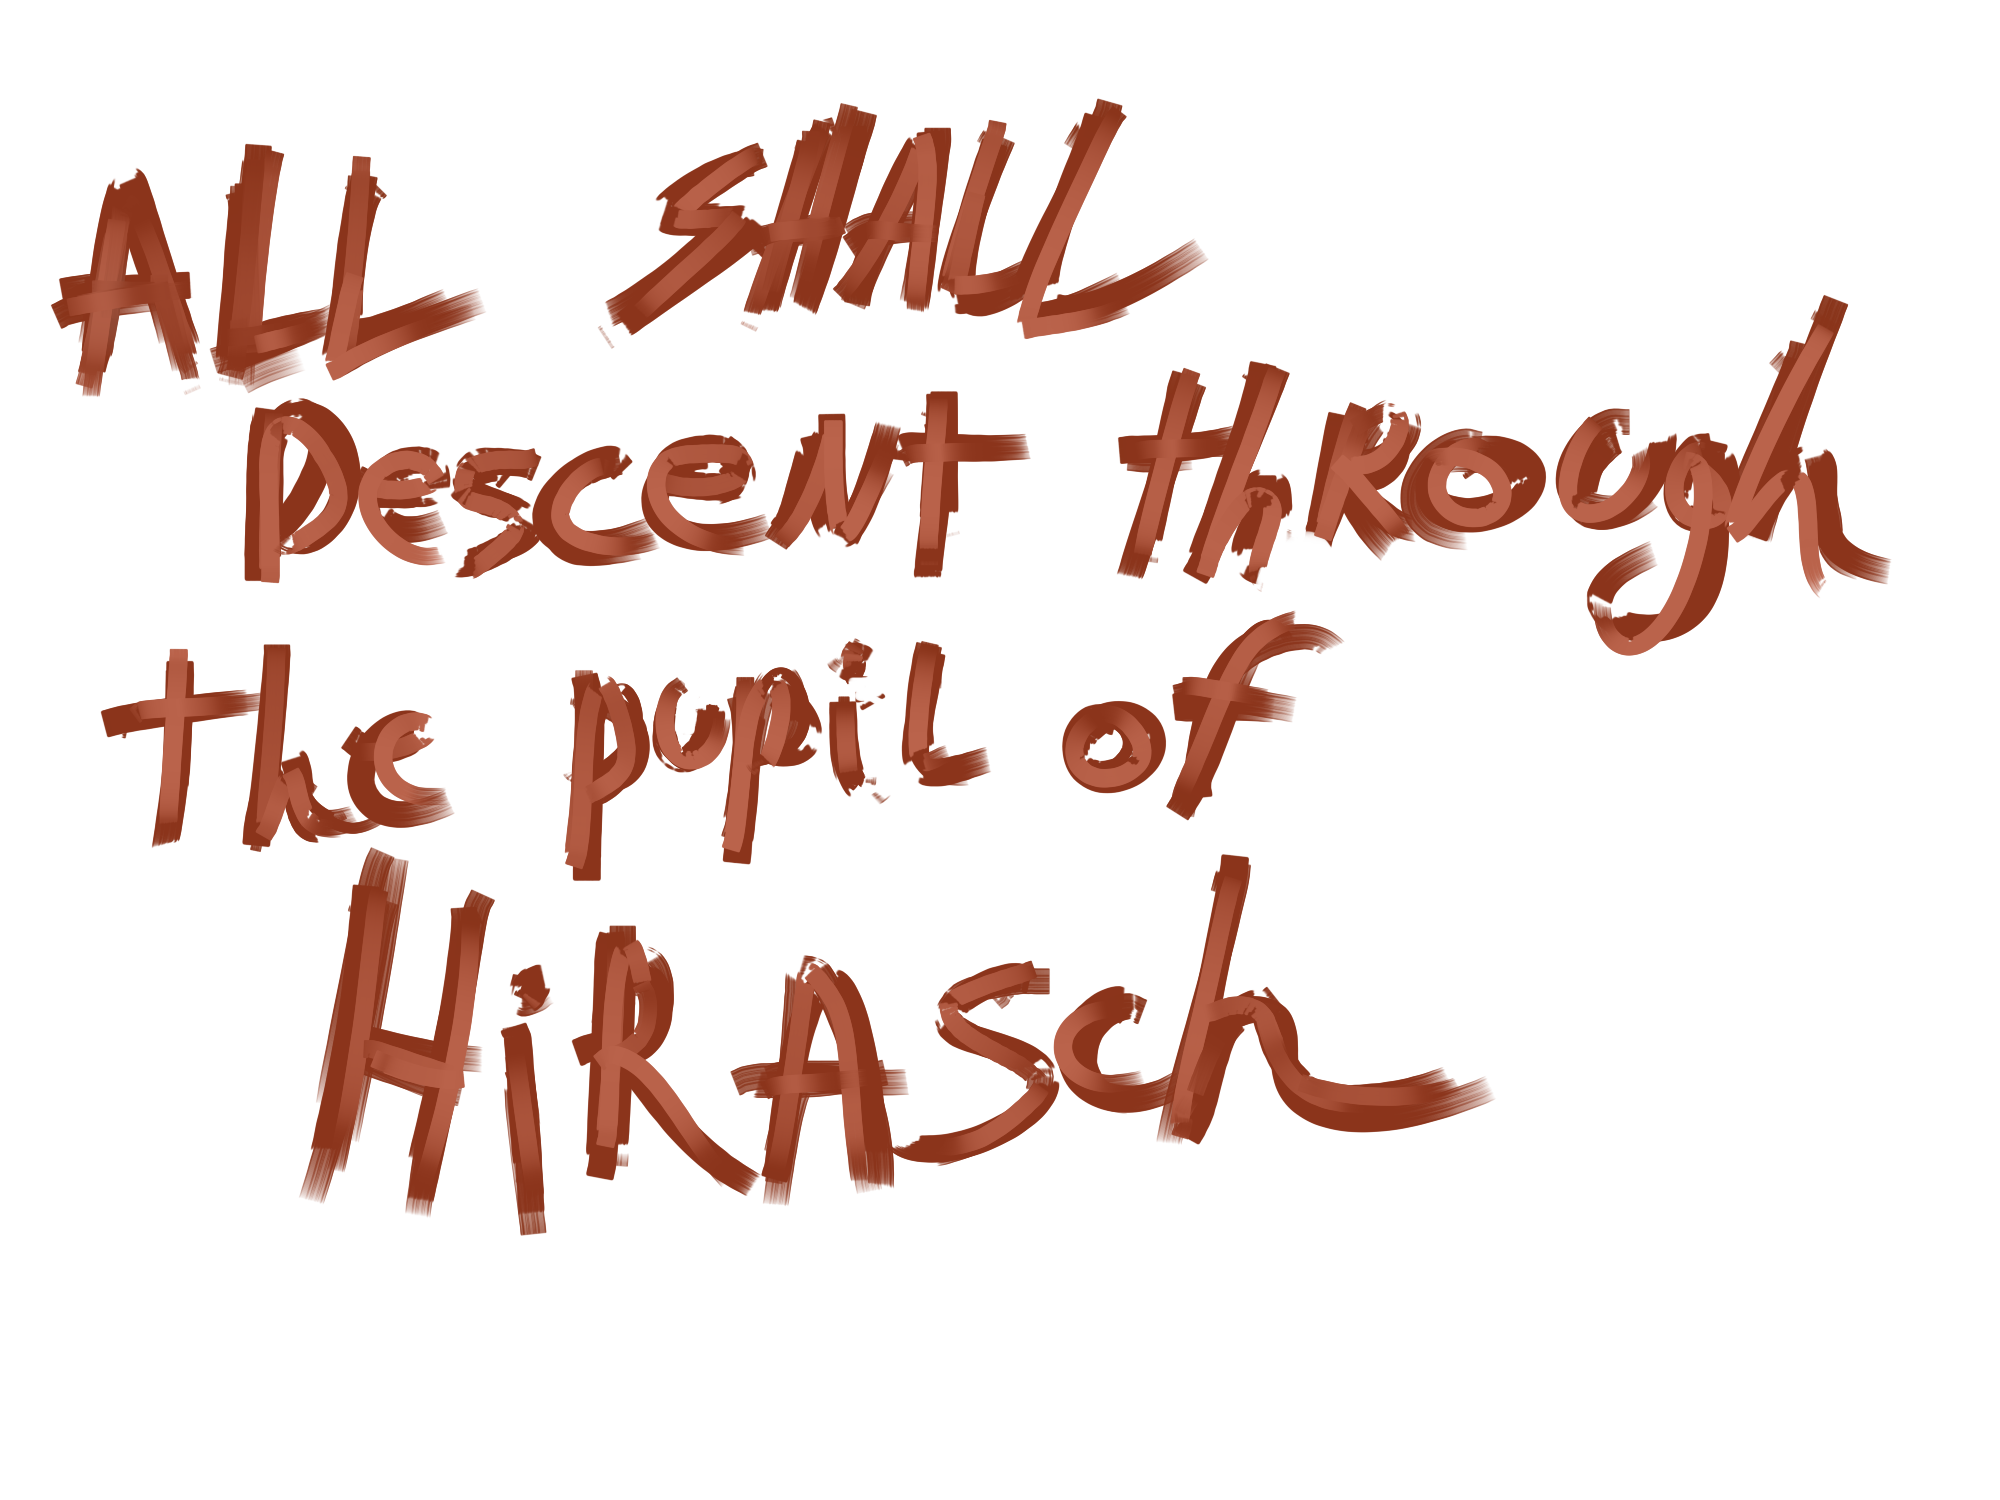 ALL SHALL
Descent thRough
the pupiL of
HiRASch